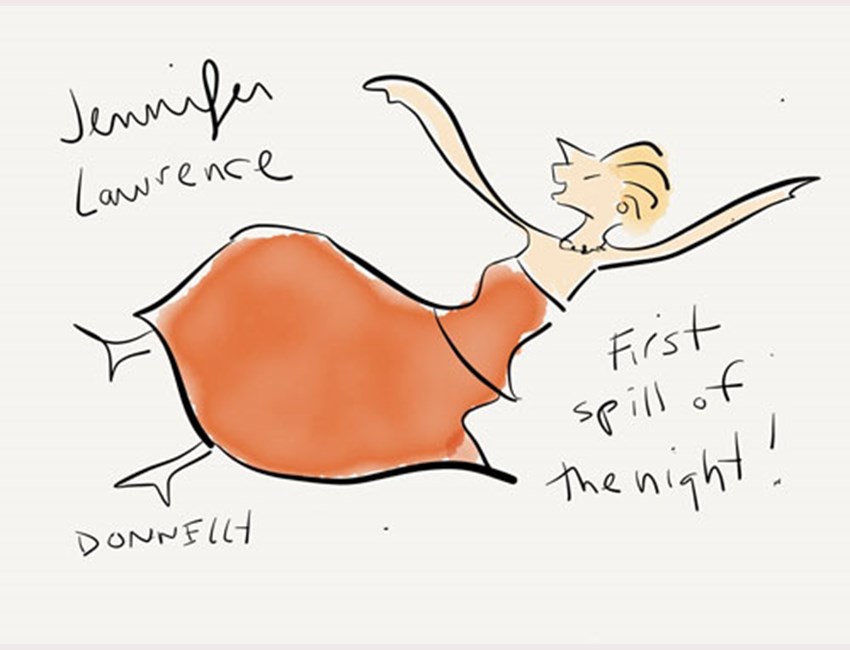 Jennifer
Lawrence
First
spill of
the night!
DONNELLY